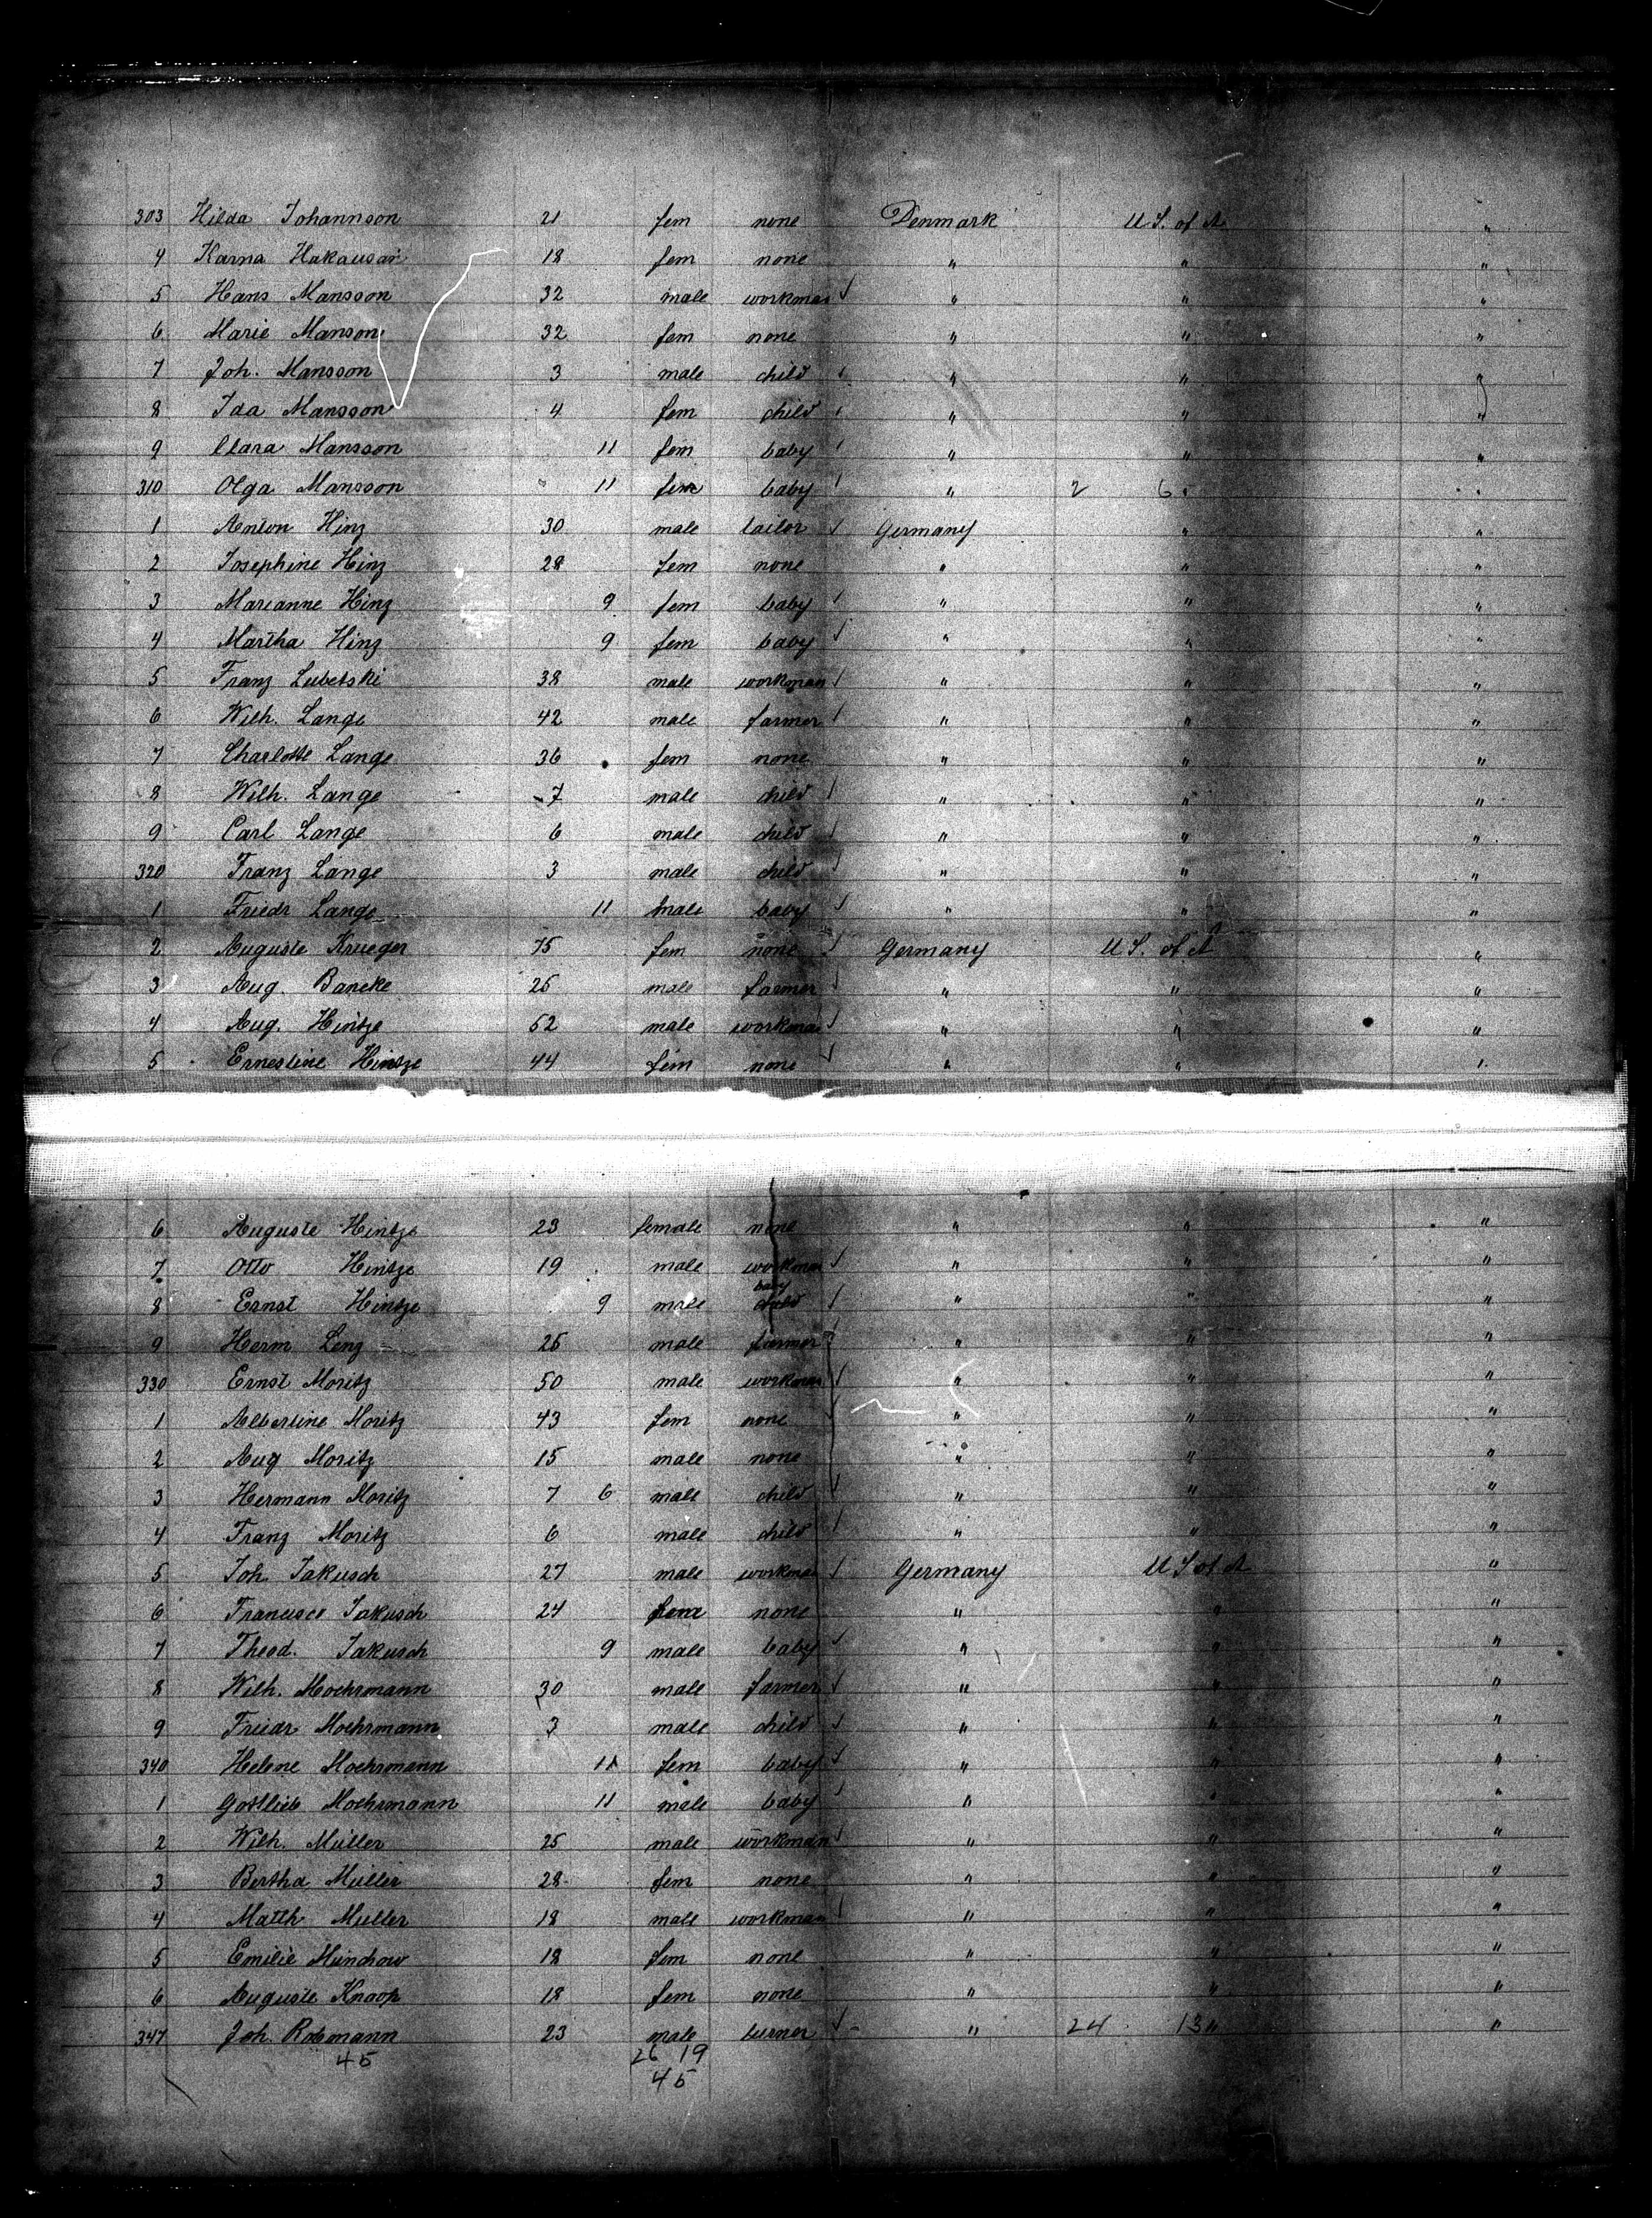 303 Hilda Johannson 21 fem none Denmark U.S. of A "
4 Karna Hakausan 18 fem none " " "
5 Hans Mansson 32 male workman " " "
6 Marie Manson 32 fem none " " "
7 Joh. Mansson 3 male child " " "
8 Ida Mansson 4 fem child " " "
9 Clara Mansson 11 fem baby " " "
310 Olga Mansson 11 fem baby " 2 6 " "
1 Anton Hinz 30 male tailor Germany " "
2 Josephine Hinz 28 fem none " " "
3 Marianne Hinz 9 fem baby " " "
4 Martha Hinz 9 fem baby " " "
5 Franz Lubetski 38 male workman " " "
6 Wilh. Lange 42 male farmer " " "
7 Charlotte Lange 36 fem none " " "
8 Wilh. Lange 7 male child " " "
9 Carl Lange 6 male child " " "
320 Franz Lange 3 male child " " "
1 Friedr Lange 11 male baby " " "
2 Auguste Krueger 75 fem none Germany U.S. of A "
3 Aug. Bancke 25 male farmer " " "
4 Aug. Hintze 52 male workman " " "
5 Ernestine Hintze 44 fem none " " "
6 Auguste Hintze 23 female none " " "
7 Otto Hintze 19 male workman " " "
8 Ernst Hintze 9 male baby child " " "
9 Herm Lenz 25 male farmer " " "
330 Ernst Moritz 50 male workman " " "
1 Albertine Moritz 43 fem none " " "
2 Aug Moritz 15 male none " " "
3 Hermann Moritz 7 6 male child " " "
4 Franz Moritz 6 male child " " "
5 Joh Jakusch 27 male workman Germany U S of A "
6 Francisco Jakusch 24 fem none " " "
7 Theod. Jakusch 9 male baby " " "
8 Wilh. Moehrmann 30 male farmer " " "
9 Friedr Moehrmann 3 male child " " "
340 Helene Moehrmann 11 fem baby " " "
1 Gottlieb Moehrmann 11 male baby " " "
2 Wilh. Müller 25 male workman " " "
3 Bertha Müller 28 fem none " " "
4 Matth Muller 18 male workman " " "
5 Emilie Münchow 18 fem none " " "
6 Auguste Knoop 18 fem none " " "
347 Joh. 23 male turner " 24 13 " "
45 26 19
45